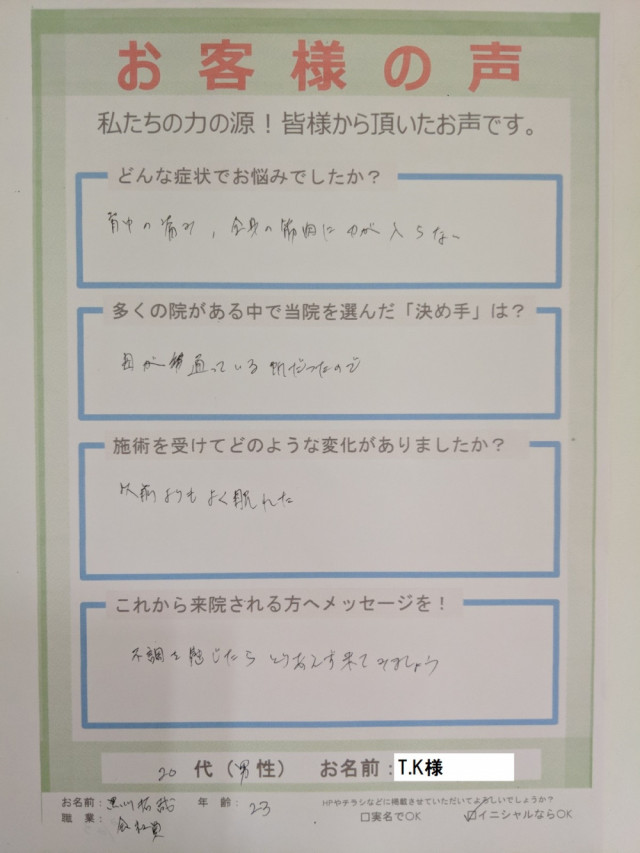 お客様の声
私たちの力の源！皆様から頂いたお声です。
どんな症状でお悩みでしたか？
背中の痛み，全身の筋肉に力が入らない
多くの院がある中で当院を選んだ「決め手」は？
通っている所だったので
施術を受けてどのような変化がありましたか？
以前よりもよく眠れた
これから来院される方へメッセージを！
不調を感じたらとりあえず来てみましょう
20代（男性） お名前：T.K様
お名前： 年齢：23
HPやチラシなどに掲載させていただいてよろしいでしょうか？
職業：会社員
□実名でOK ☑イニシャルならOK